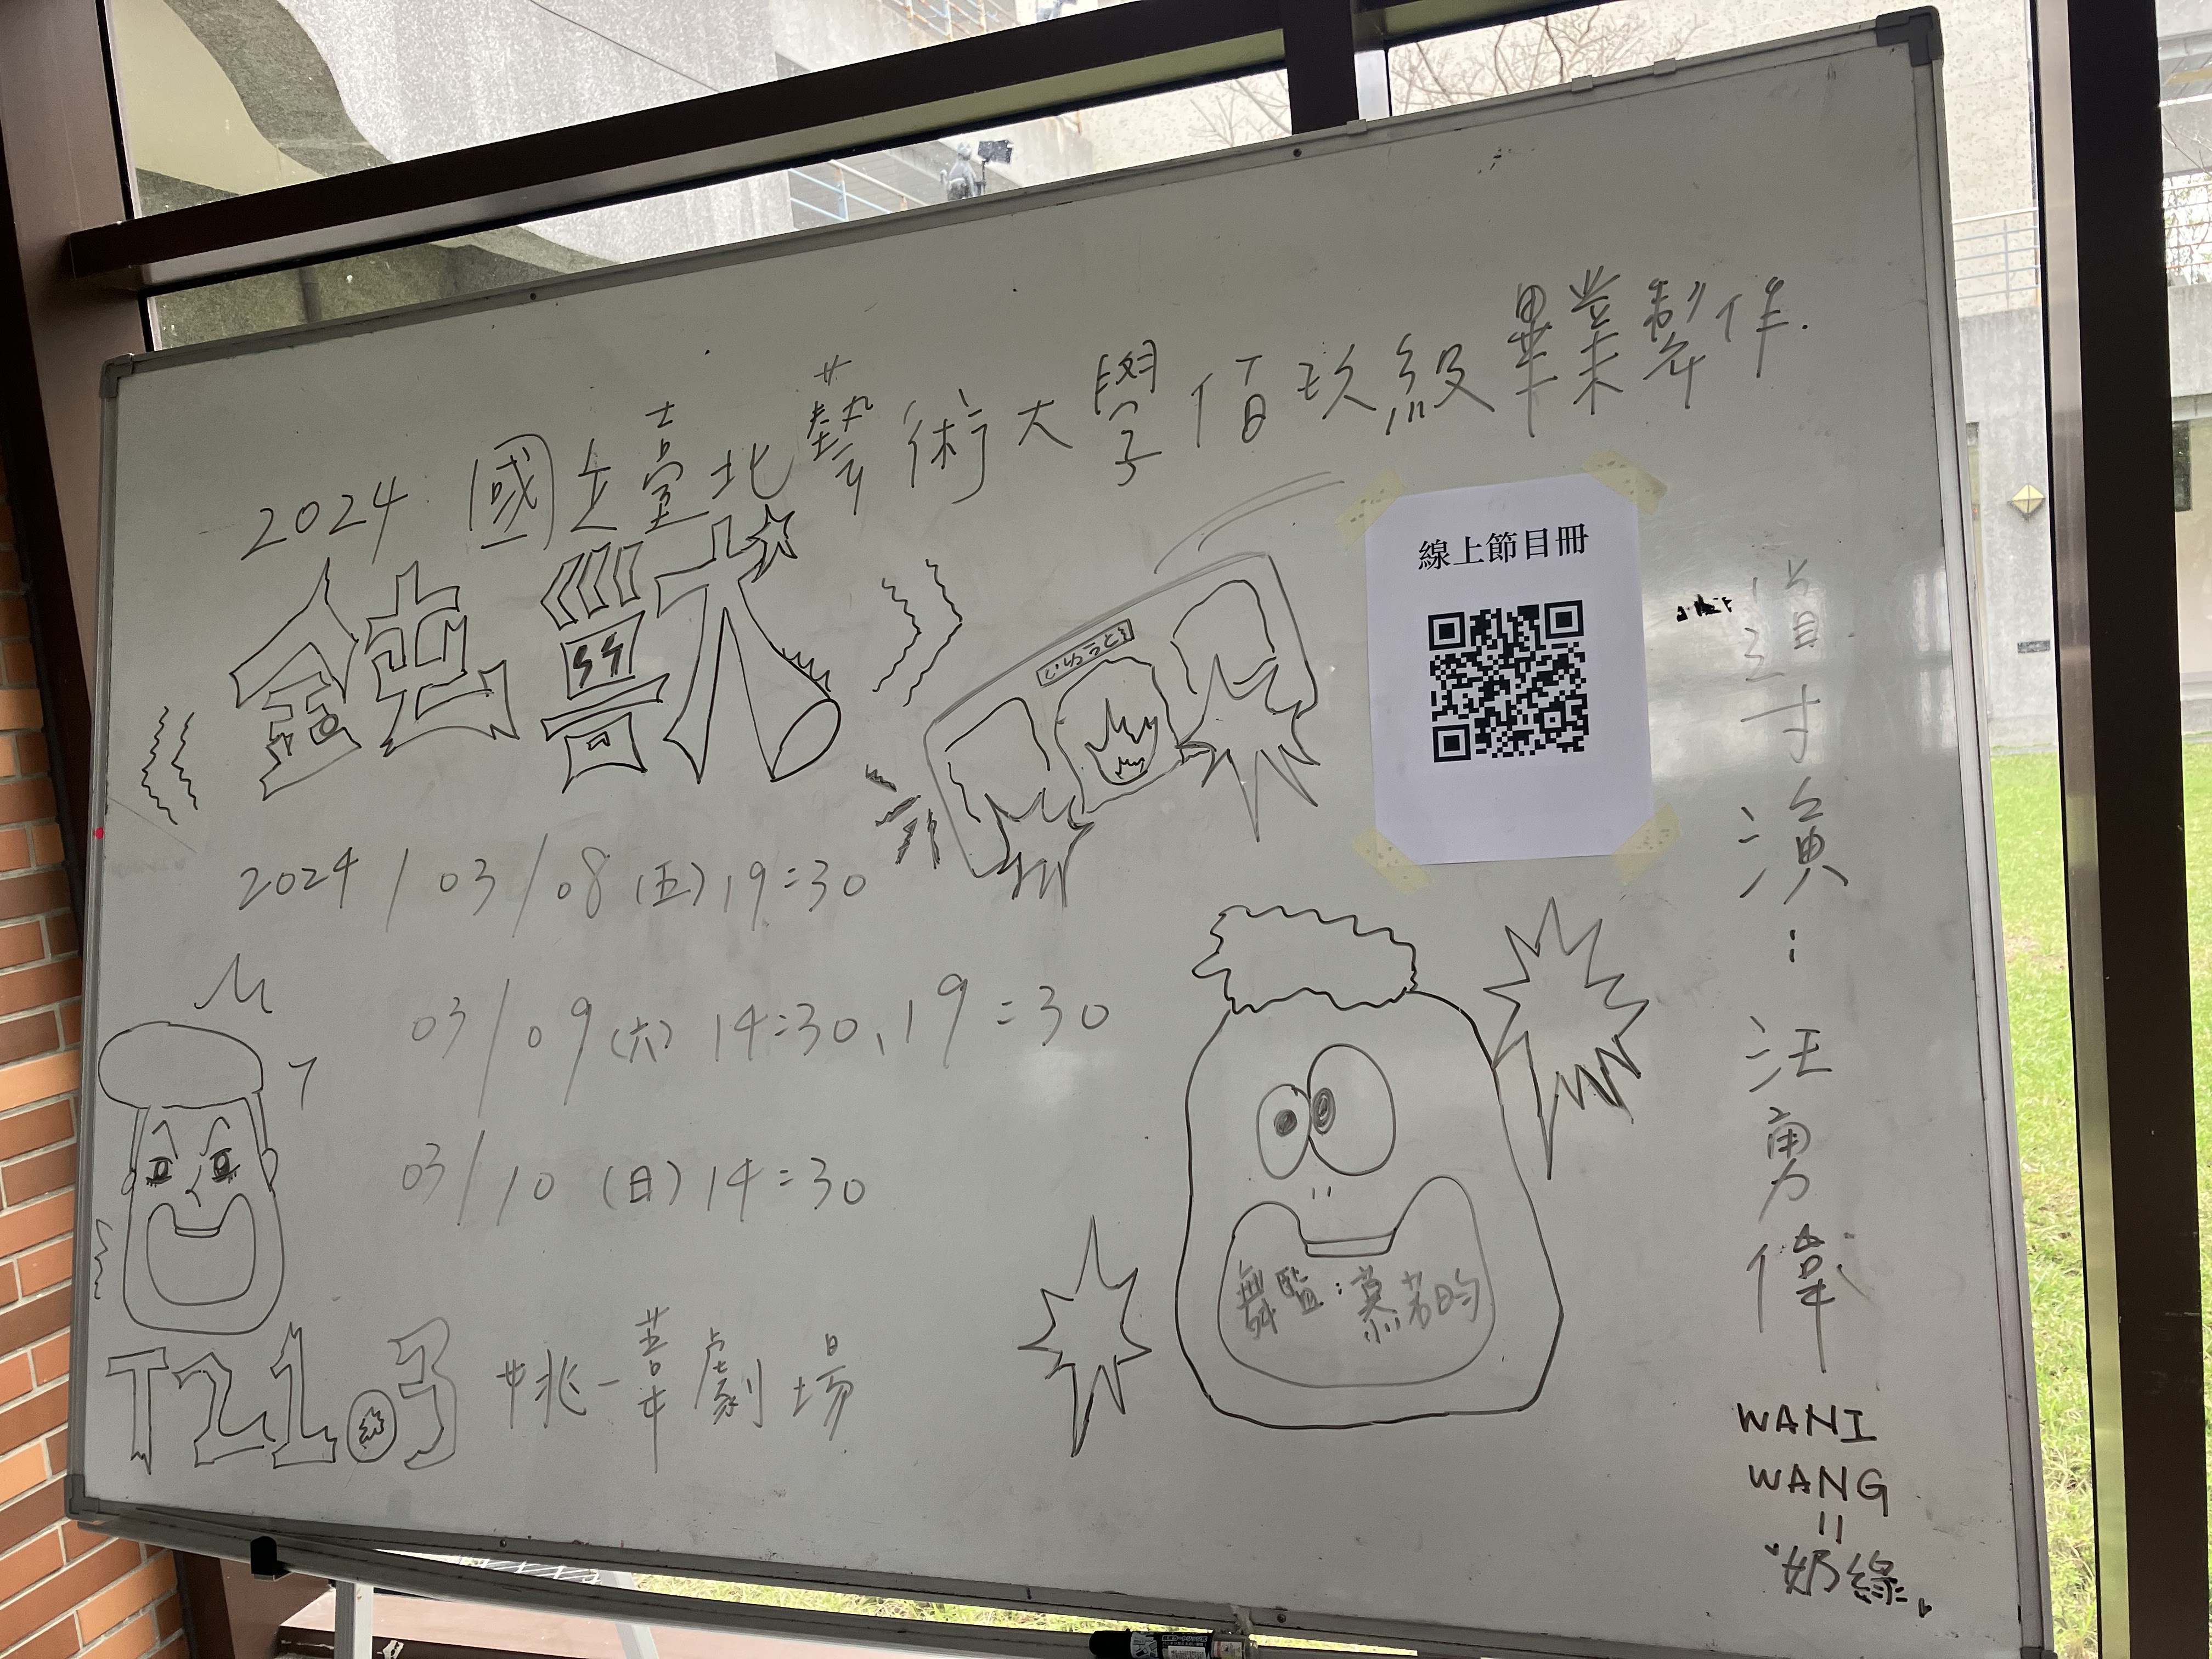 2024 國立臺北藝術大學佰玖級畢業製作.
鈍獸
いらうと
線上節目冊
2024/03/08(五)19:30
03/09(六)14:30、19:30
03/10(日)14:30
T21.3 姚一葦劇場
舞監:慕若昀
導演:汪勇偉
WANI
WANG
=
奶綠